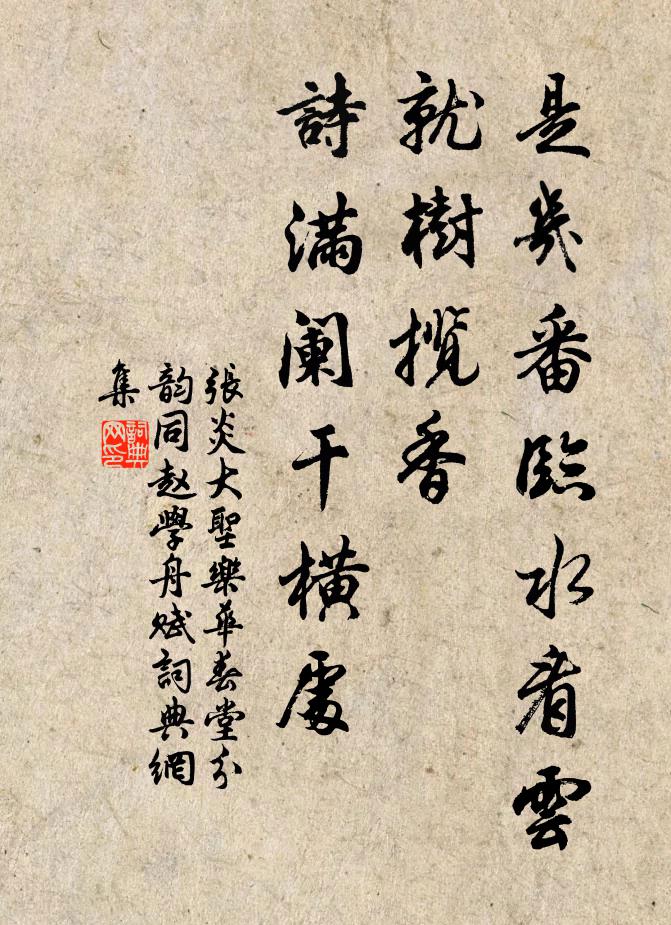 是幾番臨水看雲
就樹攬香
詩滿闌干橫處
張炎大聖樂華春堂分
韵同赵學舟賦詞典網
集
詞典網印